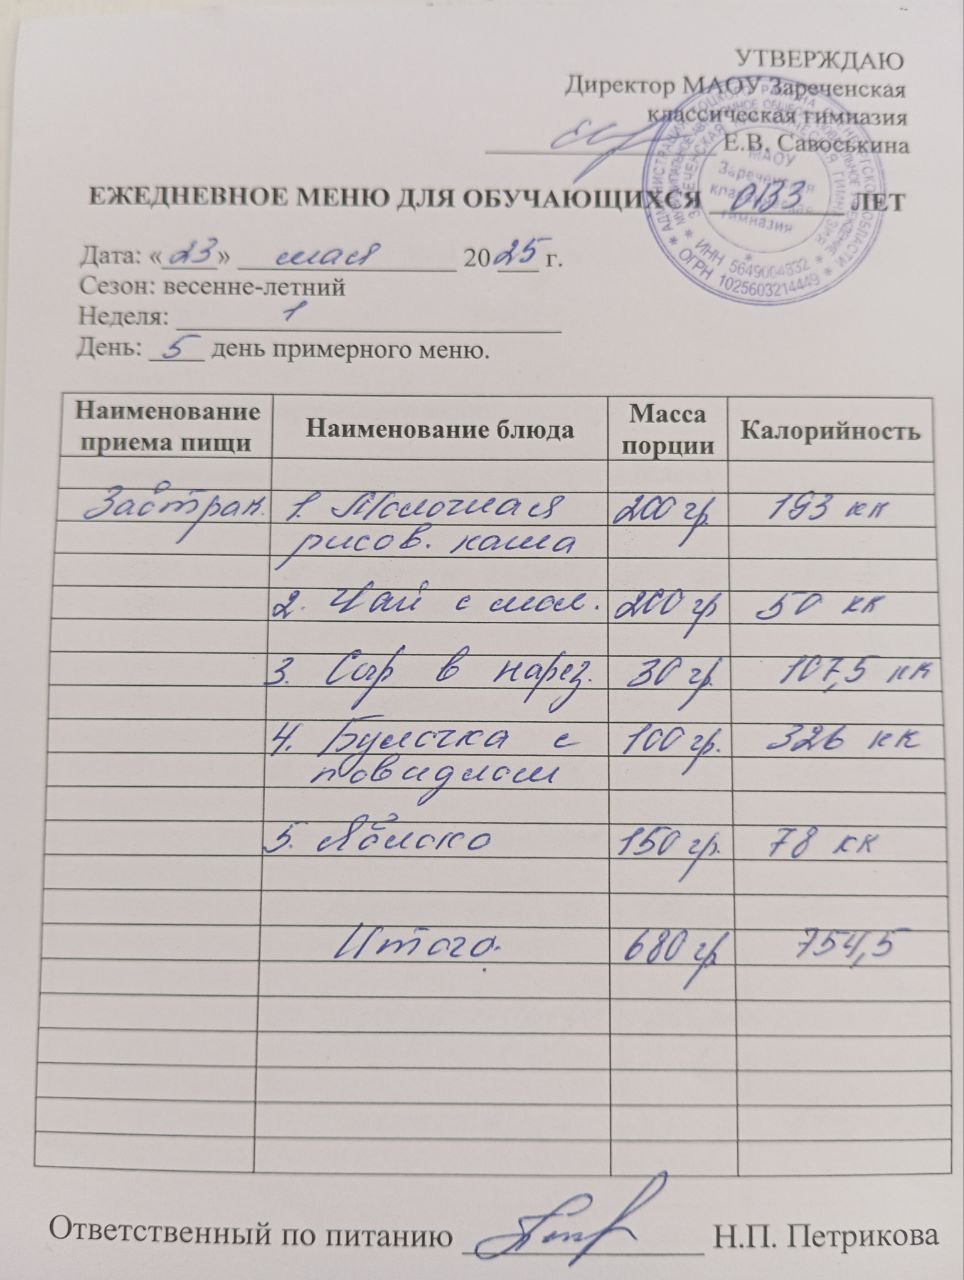 УТВЕРЖДАЮ
Директор МАОУ Зареченская
классическая гимназия
Е.В. Савоськина
ЕЖЕДНЕВНОЕ МЕНЮ ДЛЯ ОБУЧАЮЩИХСЯ ОВЗ ЛЕТ
Дата: «23» мая 2025 г.
Сезон: весенне-летний
Неделя: 1
День: 5 день примерного меню.
Наименование приема пищи Наименование блюда Масса порции Калорийность
Завтрак. 1. Молочная 200 гр. 193 кк
рисов. каша
2. Чай с мол. 200 гр 50 кк
3. Сыр в нарез. 30 гр. 107,5 кк
4. Булочка с 100 гр. 326 кк
повидлом
5. Яблоко 150 гр. 78 кк
Итого. 680 гр 754,5
Ответственный по питанию Н.П. Петрикова
МАОУ
Зареченская
классическая
гимназия
ИНН 5649004832
ОГРН 1025603214449